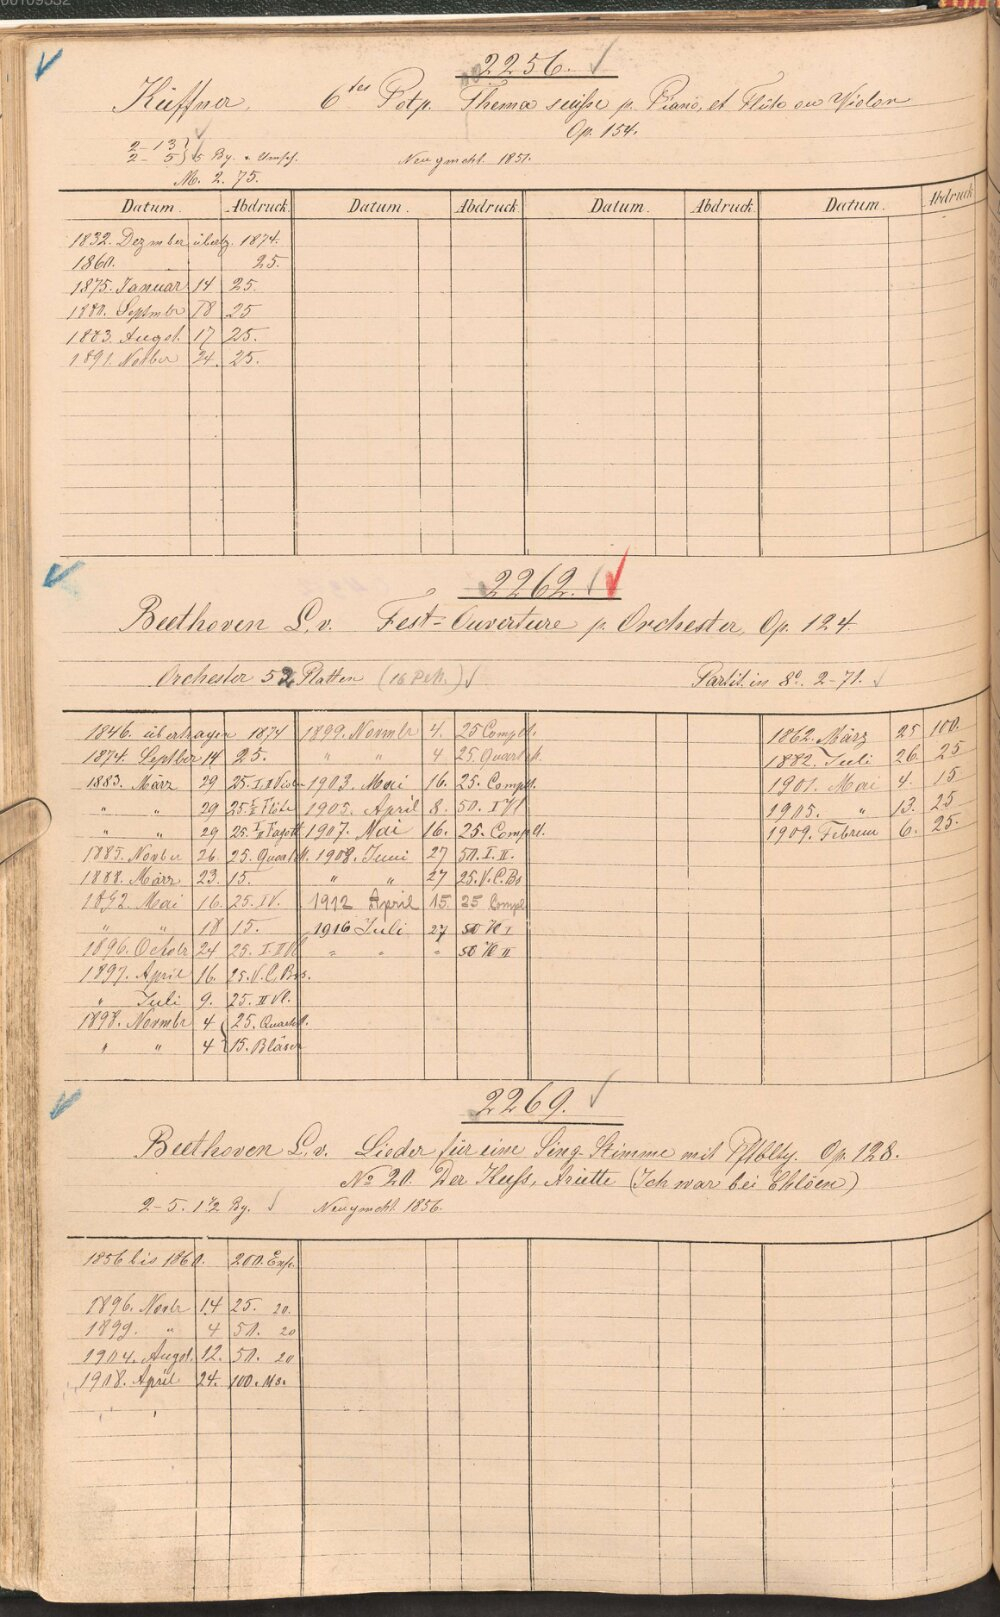 00109532
2256.
Küffner, 6tes Potp. Thema suisse p. Piano, et Flûte ou Violon
Op. 154.
2-13
2-5 } 5 Bg. u. Umschl. Neu gmcht. 1851.
M. 2. 75.
Datum. Abdruck. Datum. Abdruck. Datum. Abdruck. Datum. Abdruck
1832. Dezmber übertg. 1874.
1860. 25.
1875. Januar 14 25.
1880. Septmbr 18 25
1883. Augst. 17 25.
1891. Novber 24. 25.
2262.
Beethoven L. v. Fest-Ouverture p. Orchester, Op. 124.
Orchester 52 Platten Partit. in 8o. 2-71.
1846. übertragen 1874 1899. Novmbr 4. 25 Complt. 1862. März 25 100.
1874. Septber 14 25. " " 4 25. Quartett. 1882. Juli 26. 25
1883. März 29 25. I. II Viol. 1903. Mai 16. 25. Complt. 1901. Mai 4. 15
" " 29 25. I II Flöte 1905. April 8. 50. I Vl 1905. " 13. 25
" " 29 25. I II Fagott 1907. Mai 16. 25. Compl. 1909. Februar 6. 25.
1885. Novber 26. 25. Quartett. 1908. Juni 27 50. I. II.
1888. März 23. 15. " " 27 25. V. C. Bs
1892. Mai 16. 25. IV. 1912 April 15. 25 Compl
" " 18 15. 1916 Juli 27 50 Vl I
1896. Octobr 24 25. I. II Vl. " " " 50 Vl II
1897. April 16. 25. V. C. Bss.
" Juli 9. 25. II Vl.
1898. Novmbr 4 25. Quartett.
" " 4 15. Bläser
2269.
Beethoven L. v. Lieder für eine Sing-Stimme mit Pftbltg. Op. 128.
No 20. Der Kuss, Ariette (Ich war bei Chlöen)
2-5. 1 1/2 Bg. Neu gmcht. 1856.
1856 bis 1860. 200. Expl.
1896. Novbr 14 25. 20.
1899. " 4 50. 20
1904. Augst. 12. 50. 20
1908. April 24. 100.